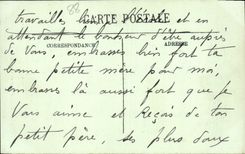 82
travailles bien et en
CARTE POSTALE
attendant le bonheur d'être auprès
CORRESPONDANCE ADRESSE
de Vous, embrasses bien fort ta
bonne petite mère pour moi,
embrasses là aussi fort que je
Vous aime et Reçois de ton
petit père, ses plus doux